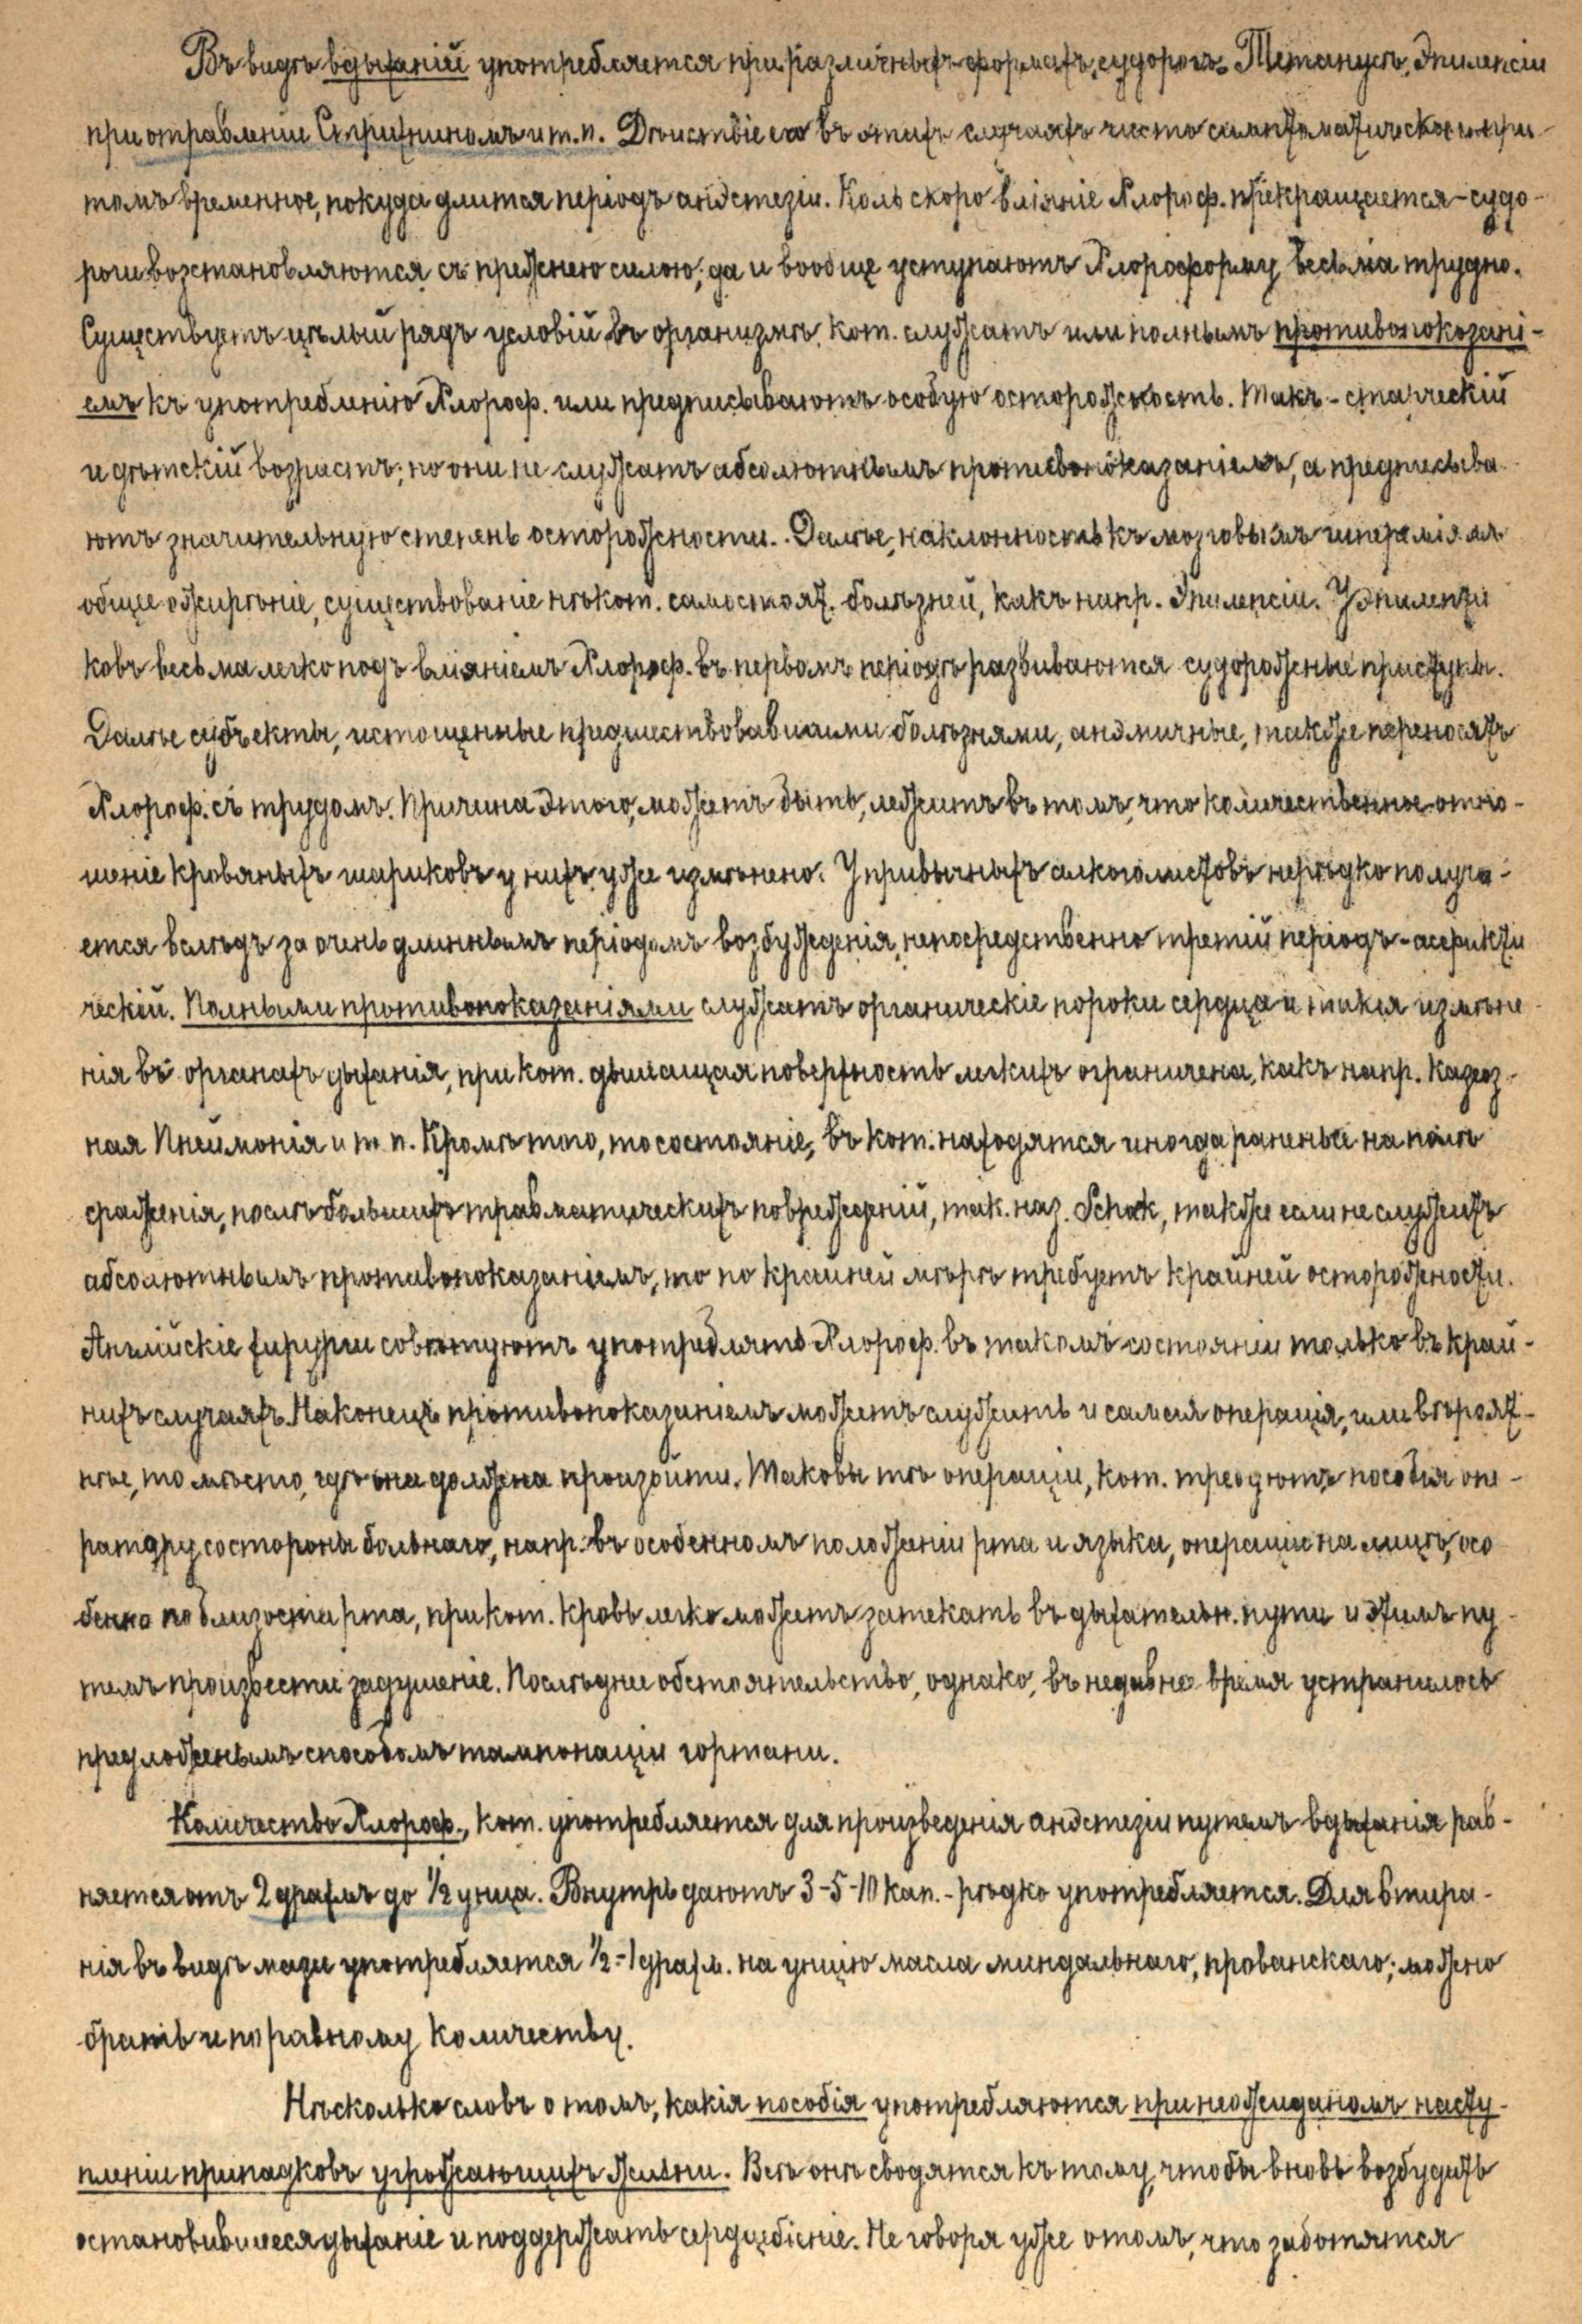 Въ видѣ вдыханій употребляется при различныхъ формахъ судорогъ. Тетанусъ, Эпилепсіи
при отравленіи Стрихниномъ и т. п. Дѣйствіе его въ этихъ случаяхъ чисто симптоматическое и при-
томъ временное, покуда длится періодъ анэстезіи. Коль скоро вліяніе Хлороф. прекращается – судо-
роги возстановляются съ прежнею силою, да и вообще уступаютъ Хлороформу весьма трудно.
Существуетъ цѣлый рядъ условій въ организмѣ, кот. служатъ или полнымъ противопоказані-
емъ къ употребленію Хлороф. или предписываютъ особую осторожность. Такъ – старческій
и дѣтскій возрастъ; но они не служатъ абсолютнымъ противопоказаніемъ, а предписыва-
ютъ значительную степень осторожности. Далѣе, наклонность къ мозговымъ гипереміямъ
общее ожирѣніе, существованіе нѣкот. самостоят. болѣзней, какъ напр. Эпилепсіи. У Эпилепти
ковъ весьма легко подъ вліяніемъ Хлороф. въ первомъ періодѣ развиваются судорожные приступы.
Далѣе субъекты, истощенные предшествовавшими болѣзнями, анэмичные, также переносятъ
Хлороф. съ трудомъ. Причина этого, можетъ быть, лежитъ въ томъ, что количественное отно-
шеніе кровяныхъ шариковъ у нихъ уже измѣнено. У привычныхъ алкоголистовъ нерѣдко получа-
ется вслѣдъ за очень длиннымъ періодомъ возбужденія, непосредственно третій періодъ – асфикти
ческій. Полными противопоказаніями служатъ органическіе пороки сердца и такія измѣне-
нія въ органахъ дыханія, при кот. дышащая поверхность легкихъ ограничена, какъ напр. Казеоз-
ная Пнеймонія и т. п. Кромѣ того, то состояніе, въ кот. находятся иногда раненые на полѣ
сраженія, послѣ большихъ травматическихъ поврежденій, так. наз. Schok, также если не служитъ
абсолютнымъ противопоказаніемъ, то по крайней мѣрѣ требуетъ крайней осторожности.
Англійскіе хирурги совѣтуютъ употреблять Хлороф. въ такомъ состояніи только въ край-
нихъ случаяхъ. Наконецъ противопоказаніемъ можетъ служить и самая операція, или вѣроят-
нѣе, то мѣсто, гдѣ она должна произойти. Таковы тѣ операціи, кот. требуютъ пособія опе-
ратору со стороны больнаго, напр. въ особенномъ положеніи рта и языка, операціи на лицѣ, осо
бенно по близости рта, при кот. кровь легко можетъ затекать въ дыхательн. пути и этимъ пу-
темъ произвести задушеніе. Послѣднее обстоятельство, однако, въ недавнее время устранилось
предложеннымъ способомъ тампонаціи гортани.
Количество Хлороф., кот. употребляется для произведенія анэстезіи путемъ вдыханія рав-
няется отъ 2 драхмъ до 1/2 унца. Внутрь даютъ 3-5-10 кап. – рѣдко употребляется. Для втира-
нія въ видѣ мази употребляется 1/2 – 1 драхм. на унцію масла миндальнаго, прованскаго; можно
брать и по равному количеству.
Нѣсколько словъ о томъ, какія пособія употребляются при неожиданомъ насту-
пленіи припадковъ угрожающихъ жизни. Всѣ онѣ сводятся къ тому, чтобы вновь возбудить
остановившееся дыханіе и поддержать сердцебіеніе. Не говоря уже о томъ, что заботятся